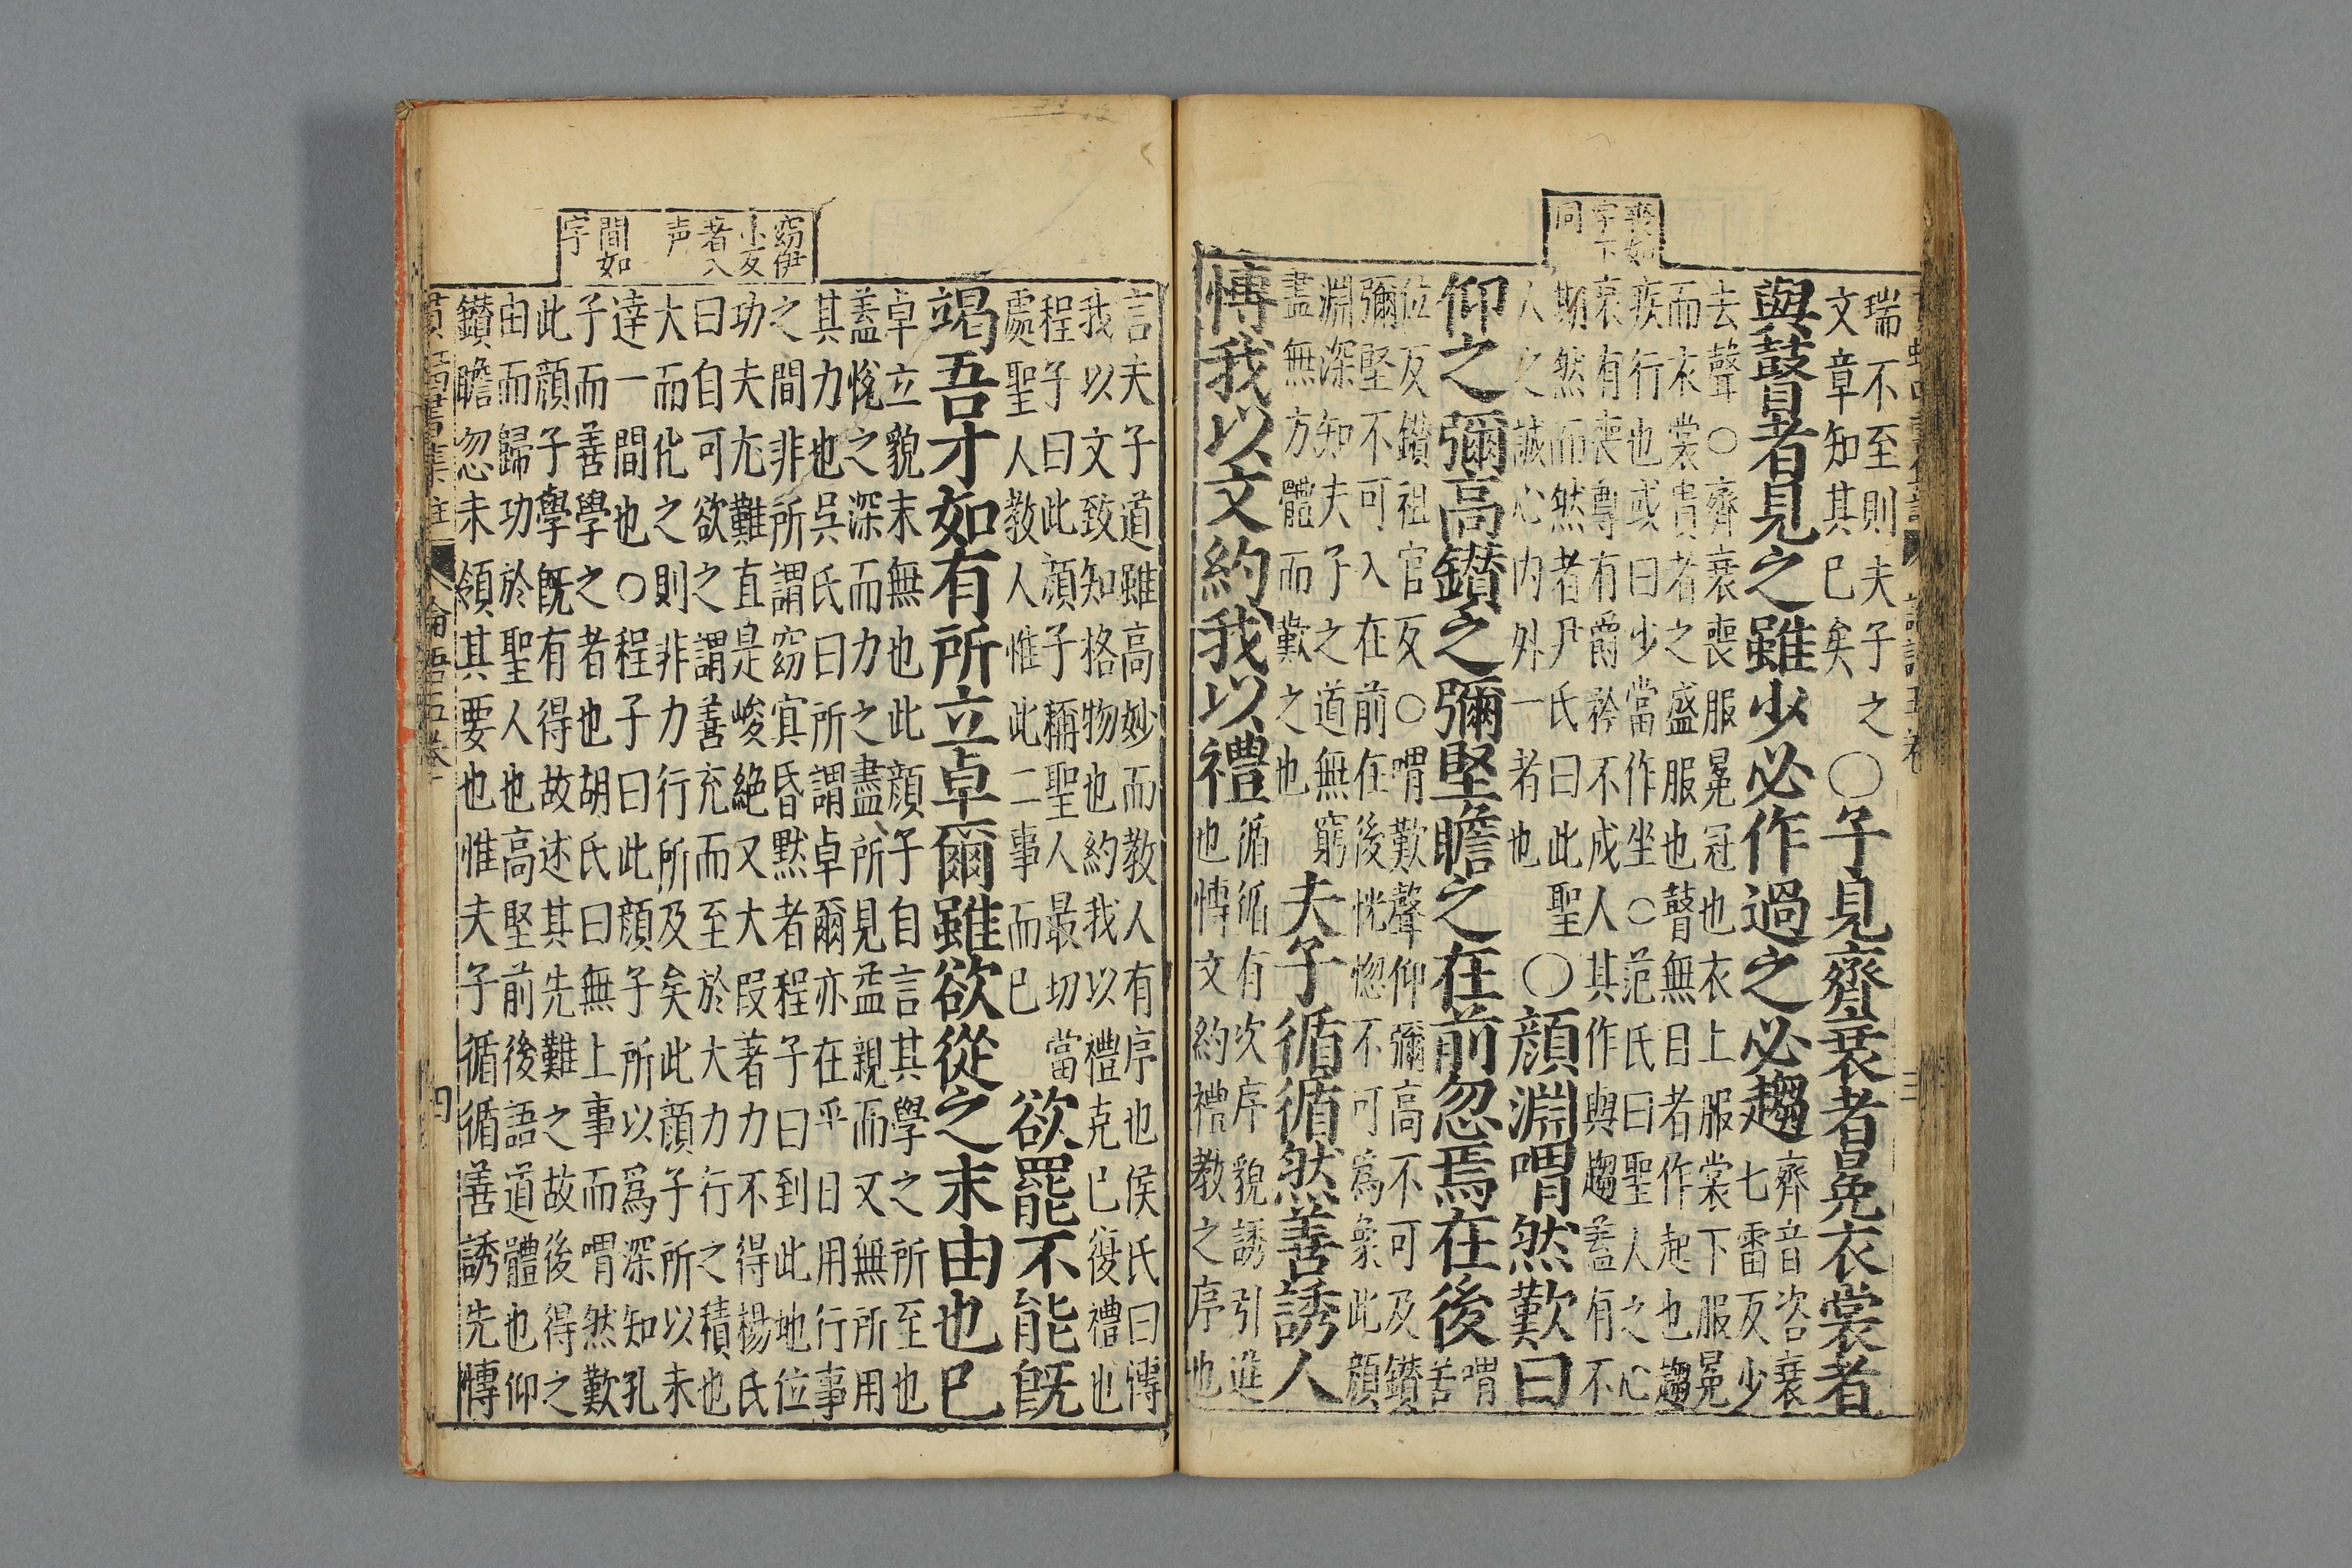 喪如
字下
同
瑞不至則夫子之
文章知其已矣
○子見齊衰者冕衣裳者
與瞽者見之雖少必作過之必趨
齊音咨衰
七雷反少
去聲○齊衰喪服冕冠也衣上服裳下服冕
而衣裳貴者之盛服也瞽無目者作起也趨
疾行也或曰少當作坐○范氏曰聖人之心
哀有喪尊有爵矜不成人其作與趨蓋有不
期然而然者尹氏曰此聖
人之誠心内外一者也
○顔淵喟然歎曰
仰之彌高鑚之彌堅瞻之在前忽焉在後
喟
苦
位反鑚祖官反○喟歎聲仰彌高不可及鑚
彌堅不可入在前在後恍惚不可爲象此顔
淵深知夫子之道無窮
盡無方體而歎之也
夫子循循然善誘人
愽我以文約我以禮
循循有次序貌誘引進
也愽文約禮教之序也
窈伊
小反
著入
声
間如
字
言夫子道雖高妙而教人有序也侯氏曰愽
我以文致知格物也約我以禮克已復禮也
程子曰此顔子稱聖人最切當
處聖人教人惟此二事而已
欲罷不能既
竭吾才如有所立卓爾雖欲從之末由也已
卓立貌末無也此顔子自言其學之所至也
蓋恱之深而力之盡所見益親而又無所用
其力也吳氏曰所謂卓爾亦在乎日用行事
之間非所謂窈冥昏黙者程子曰到此地位
功夫尢難直是峻絶又大叚著力不得楊氏
曰自可欲之謂善充而至於大力行之積也
大而化之則非力行所及矣此顔子所以未
達一間也○程子曰此顔子所以爲深知孔
子而善學之者也胡氏曰無上事而喟然歎
此顔子學既有得故述其先難之故後得之
由而歸功於聖人也高堅前後語道體也仰
鑚瞻忽未領其要也惟夫子循循善誘先愽
論語五卷
四